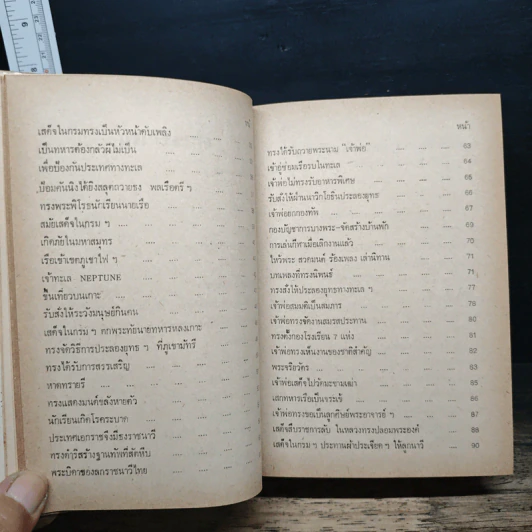 เสด็จในกรมทรงเป็นหัวหน้าดับเพลิง .... ....
เป็นทหารต้องกลัวผีไม่เป็น .... ....
เพื่อป้องกันประเทศทางทะเล .... ....
ป้อมคันนิงได้ยิงสลุตถวายธง พลเรือตรี ฯ
ทรงพระพิโรธนักเรียนนายเรือ .... ....
สมัยเสด็จในกรม ฯ .... .... ....
เกิดภัยในมหาสมุทร .... .... ....
เรือเข้าเขตภูเขาไฟ ฯ .... .... ....
เจ้าทะเล NEPTUNE .... .... ....
ขึ้นเที่ยวบนเกาะ .... .... ....
รับสั่งให้ระวังมนุษย์กินคน .... ....
เสด็จในกรม ฯ ตกพระทัยนายทหารหลงเกาะ
ทรงจัดวิธีการประลองยุทธ ฯ ที่ภูเขามัทรี
ทรงได้รับการสรรเสริญ .... .... ....
หาดทรายรี .... .... .... ....
ทรงแสดงมนต์ขลังหายตัว .... ....
นักเรียนเกิดโรคระบาด .... .... ....
ประเทศเอกราชจึงมีธงราชนาวี .... ....
ทรงดำริสร้างฐานทัพที่สัตหีบ .... ....
พระบิดาของลูกราชนาวีไทย .... ....
หน้า
ทรงได้รับถวายพระนาม "เจ้าพ่อ" .... .... 63
เข้าอู่ซ่อมเรือรบในทะเล .... .... .... 64
เจ้าพ่อไม่ทรงรับอาหารพิเศษ .... .... 66
รับสั่งให้ผ่านนาวิกโยธินประลองยุทธ .... 67
เจ้าพ่อออกกองทัพ .... .... .... 68
กองบัญชาการบางพระ-จัดสร้างบ้านพัก .... 69
การเล่นกีฬาเมื่อเลิกงานแล้ว .... .... 70
ไหว้พระ สวดมนต์ ร้องเพลง เล่านิทาน .... 71
บทเพลงที่ทรงนิพนธ์ .... .... .... 71
ทรงสั่งให้ประลองยุทธทางทะเล ฯ .... 77
เจ้าพ่อสมมติเป็นสมภาร .... .... 78
เจ้าพ่อทรงชักงานสมรสประทาน .... .... 80
ทรงตั้งกองโรงเรียน 7 แห่ง .... .... 81
เจ้าพ่อทรงเห็นงานของชาติสำคัญ .... .... 82
พระจริยวัตร .... .... .... .... 83
เจ้าพ่อเสด็จไปวัดมะขามเฒ่า .... .... 85
เสกทหารเรือเป็นจรเข้ .... .... .... 86
เจ้าพ่อทรงขอเป็นลูกศิษย์พระอาจารย์ ฯ .... 87
เสด็จสืบราชการลับ ในหลวงทรงปลอมพระองค์ .... 88
เสด็จในกรม ฯ ประทานผ้าประเจียด ฯ ให้ลูกนาวี 90